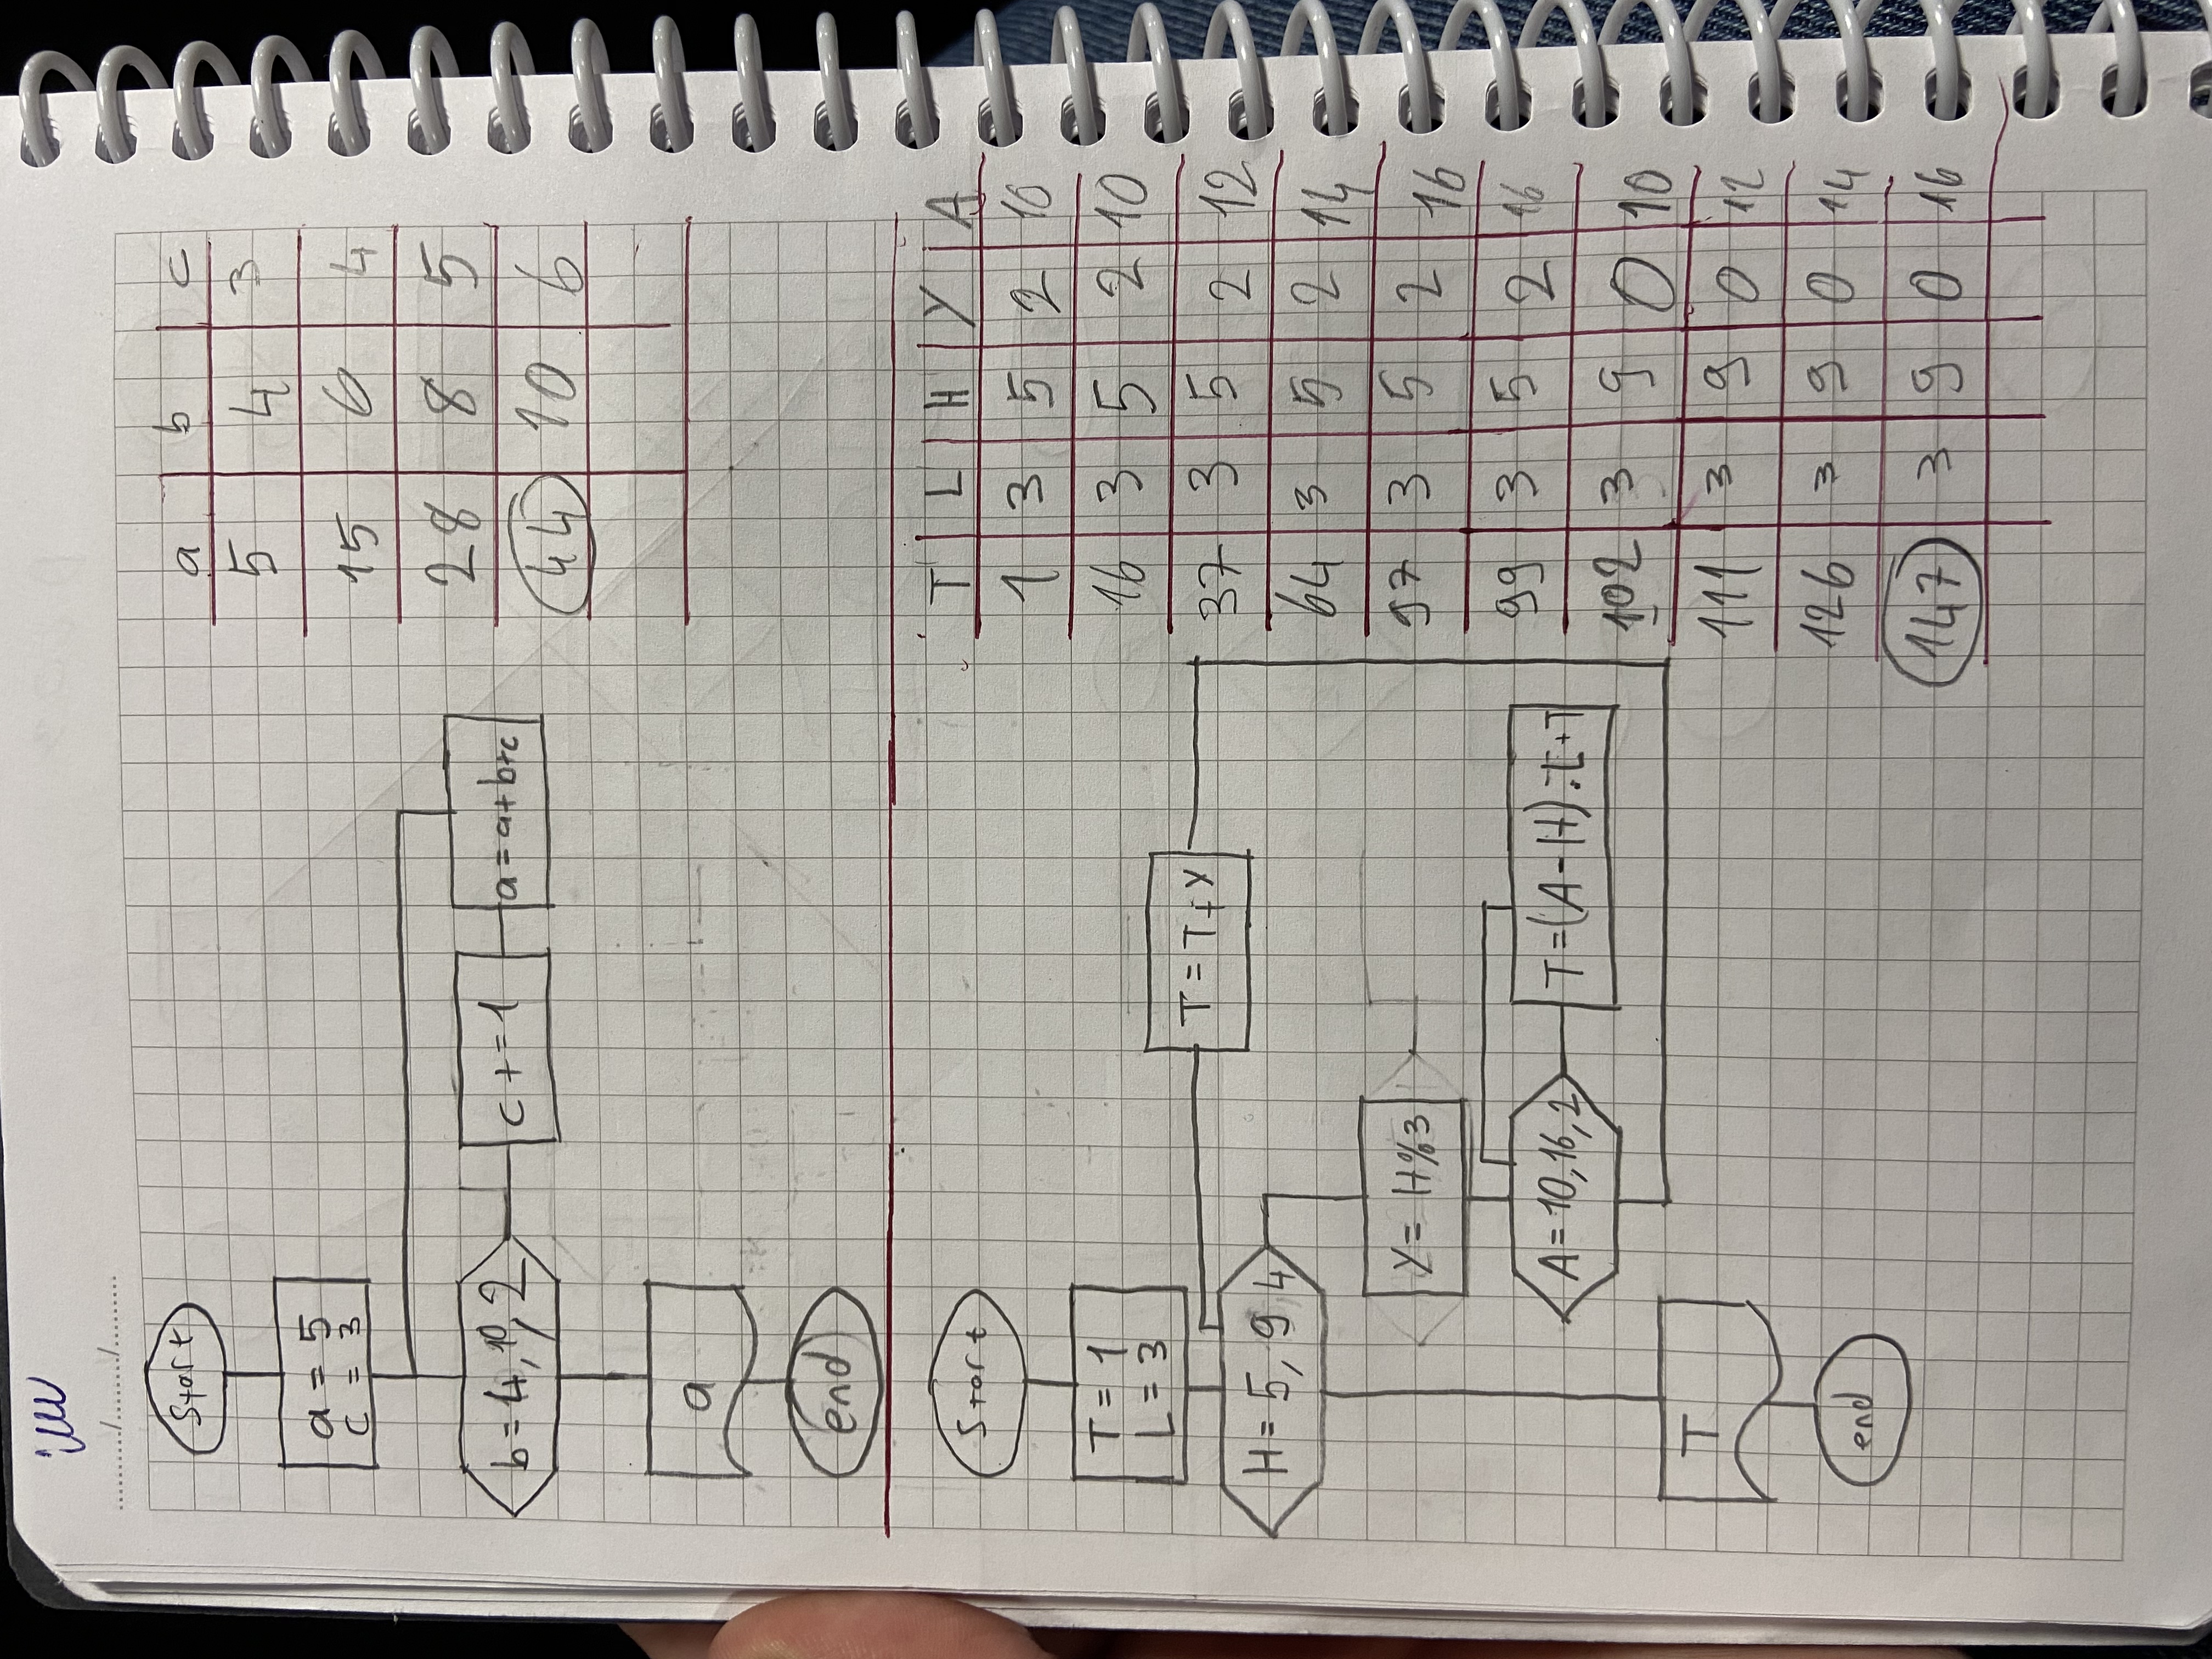 Start
a = 5
c = 3
b = 4, 10, 2
c += 1
a = a+b+c
a
end
a b c
5 4 3
15 6 4
28 8 5
44 10 6
Start
T = 1
L = 3
T = T+Y
H = 5, 9, 4
Y = H%3
A = 10, 16, 2
T = (A-H).L+T
T
end
T L H Y A
1 3 5 2 10
16 3 5 2 10
37 3 5 2 12
64 3 5 2 14
97 3 5 2 16
99 3 5 2 16
102 3 9 0 10
111 3 9 0 12
126 3 9 0 14
147 3 9 0 16